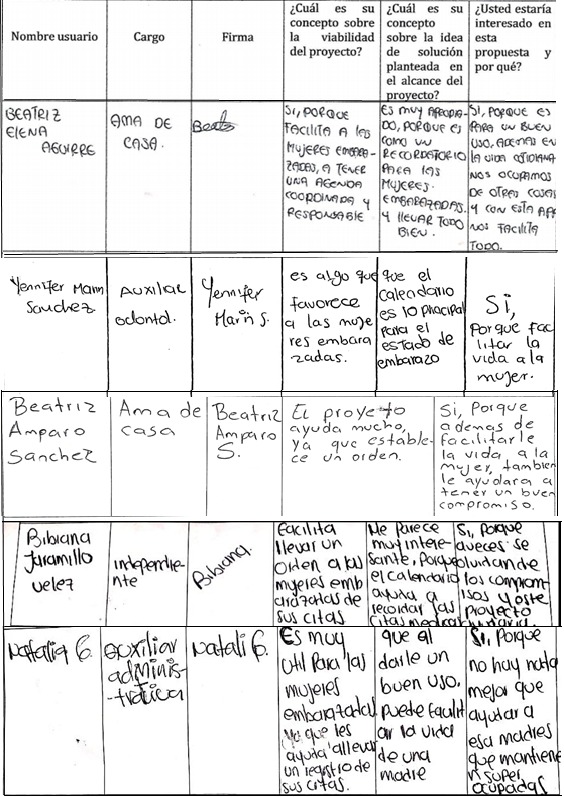 Nombre usuario
Cargo
Firma
¿Cuál es su
concepto sobre
la viabilidad
del proyecto?
¿Cuál es su
concepto
sobre la idea
de solución
planteada en
el alcance del
proyecto?
¿Usted estaría
interesado en
esta
propuesta y
por qué?
BEATRIZ
ELENA
AGUIRRE
AMA DE
CASA.
Beatriz
Si, PORQUE
FACILITA A las
MUJERES EMBARA-
ZADAS, A TENER
UNA AGENDA
COORDINADA Y
RESPONSABLE
ES MUY APROPIA-
DO, PORQUE ES
COMO UN
RECORDATORIO
PARA lAS
MUJERES.
EMBARAZADAS.
Y llEVAR TODO
BIEN.
SI, PORQUE ES
PARA UN BUEN
USO, ADEMAS EN
LA VIDA COTIDIANA
NOS OCUPAMOS
DE OTRAS COSAS
Y CON ESTA APP
NOS FACILITA
TODO.
Yennifer Marin
Sanchez
Auxiliar
odontol.
Yennifer
Marin S.
es algo que
favorece
a las muje
res embara
zadas.
que el
Calendario
es lo pricipal
para el
estado de
embarazo
Si,
Porque fac
litar la
vida a la
mujer.
Beatriz
Amparo
Sanchez
Ama de
casa
Beatriz
Amparo
S.
EL proyecto
ayuda mucho,
ya que estable-
ce un orden.
Si, Porque
ademas de
facilitarle
la vida a la
mujer, tambien
le ayudara a
tener un buen
compromiso.
Bibiana
Jaramillo
velez
independie-
nte
Bibiana.
Facilita
llevar un
orden a las
mujeres emb
arazatas de
sus citas
Me Parece
muy intere-
sante, Porque
el calendario
ayuda a
recordar las
citas medicas
Si, Porque
aveces se
olvidan de
los comprom-
isos y este
proyecto
Natalia G.
auxiliar
adminis-
-trativa
Natali G.
Es muy
util Para las
mujeres
embarazadas
Ya que les
ayuda a llevar
un registro de
sus citas.
que al
darle un
buen uso,
puede facilit
ar la vida
de una
madre
Si, Porque
no hay nada
mejor que
ayudar a
esa madres
que mantiene
n super
ocupadas